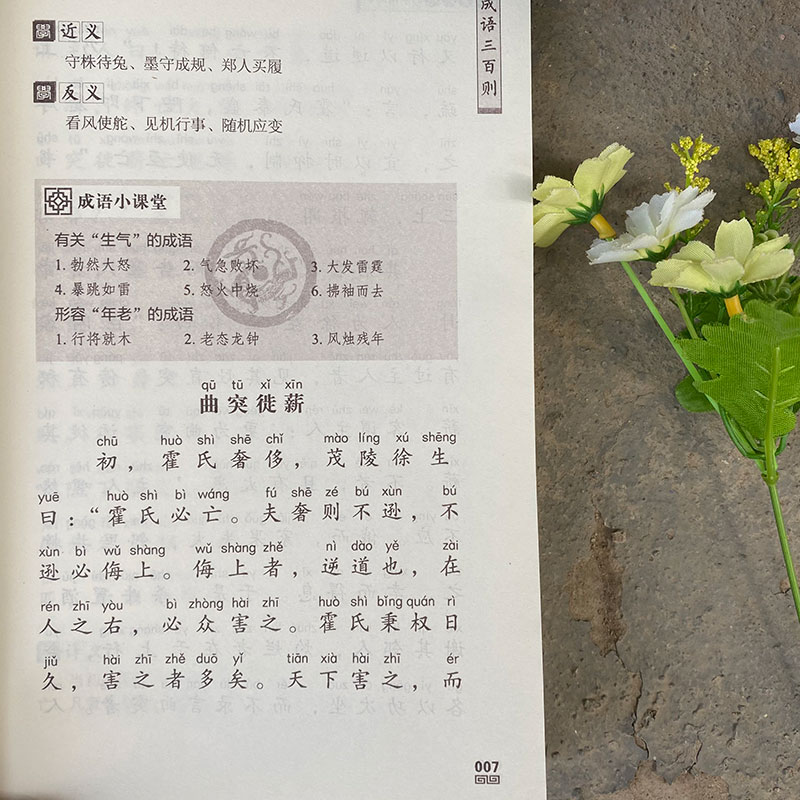 成语三百则
學 近义
守株待兔、墨守成规、郑人买履
學 反义
看风使舵、见机行事、随机应变
成语小课堂
有关“生气”的成语
1. 勃然大怒 2. 气急败坏 3. 大发雷霆
4. 暴跳如雷 5. 怒火中烧 6. 拂袖而去
形容“年老”的成语
1. 行将就木 2. 老态龙钟 3. 风烛残年
qū tū xǐ xīn
曲突徙薪
chū huò shì shē chǐ mào líng xú shēng
初，霍氏奢侈，茂陵徐生
yuē huò shì bì wáng fú shē zé bú xùn bú
曰：“霍氏必亡。夫奢则不逊，不
xùn bì wǔ shàng wǔ shàng zhě nì dào yě zài
逊必侮上。侮上者，逆道也，在
rén zhī yòu bì zhòng hài zhī huò shì bǐng quán rì
人之右，必众害之。霍氏秉权日
jiǔ hài zhī zhě duō yǐ tiān xià hài zhī ér
久，害之者多矣。天下害之，而
007